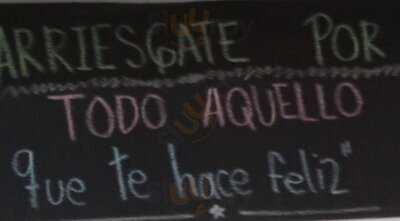 ARRIESGATE POR
TODO AQUELLO
que te hace feliz"